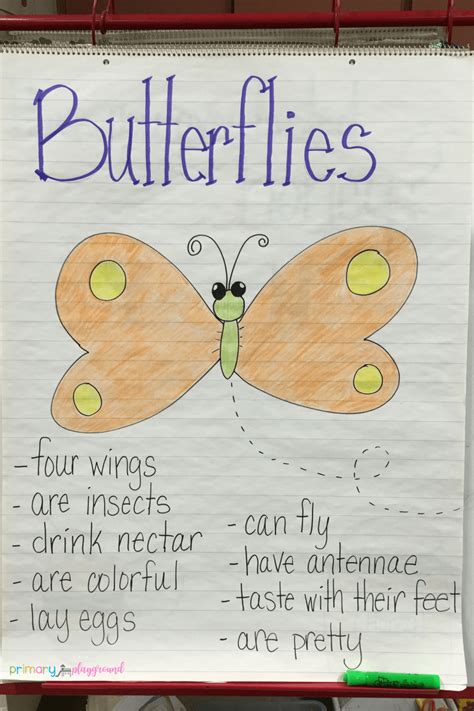 Butterflies
- four wings
- are insects
- drink nectar
- are colorful
- lay eggs
- can fly
- have antennae
- taste with their feet
- are pretty
primary playground